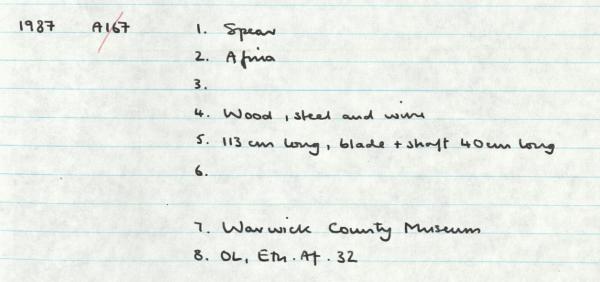 1987 A167 1. Spear
2. Africa
3.
4. Wood, steel and wire
5. 113 cm long, blade + shaft 40cm long
6.
7. Warwick County Museum
8. OL, Eth. Af. 32